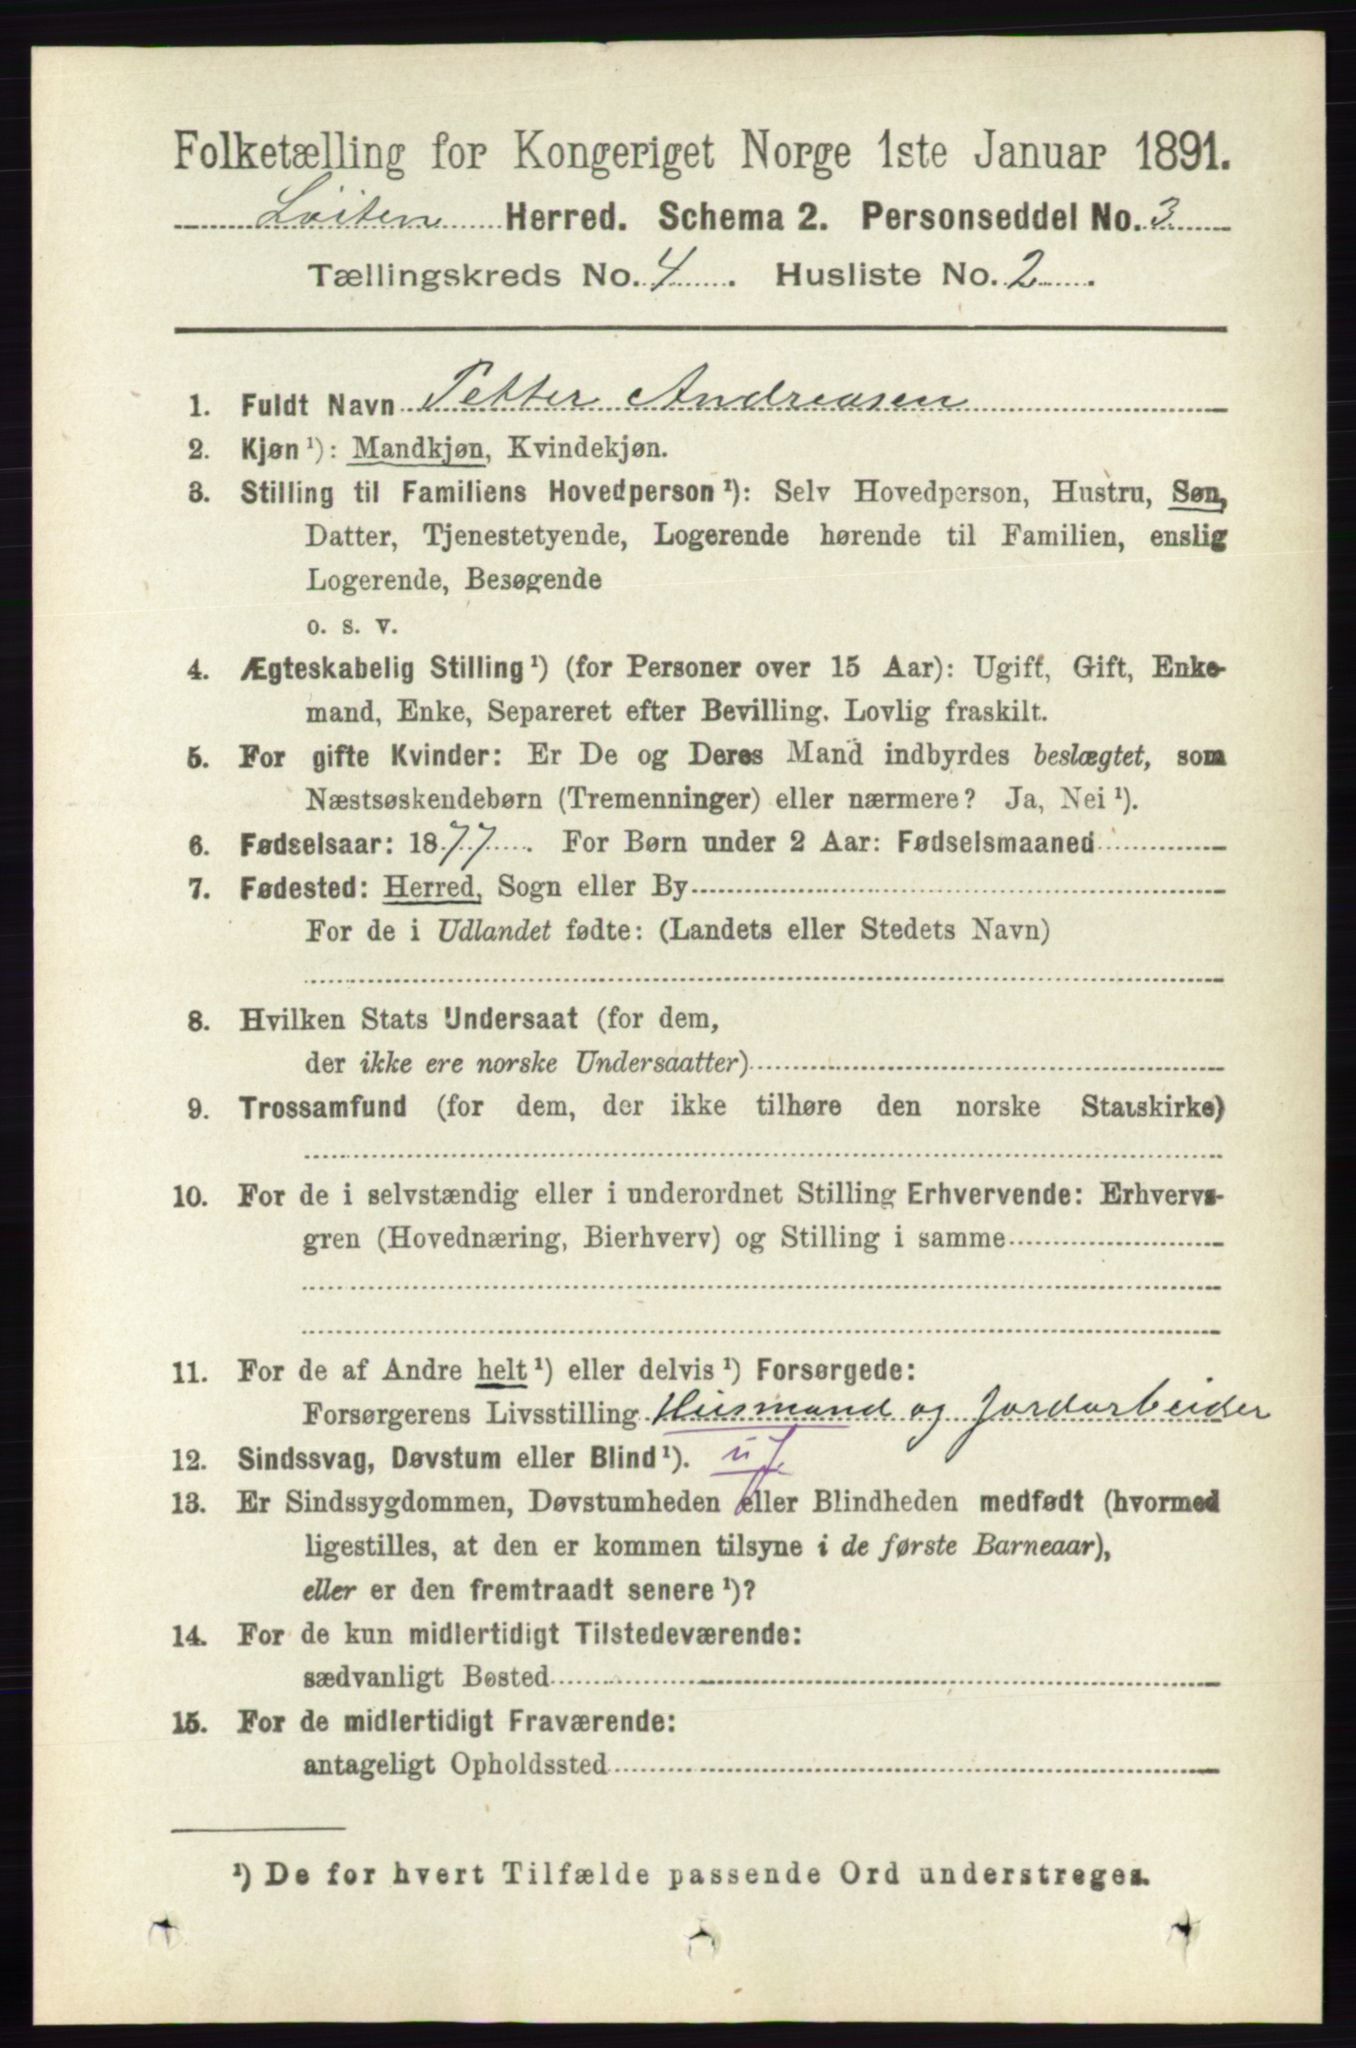 Folketælling for Kongeriget Norge 1ste Januar 1891.
Løiten Herred. Schema 2. Personseddel No. 3
Tællingskreds No. 4. Husliste No. 2.
1. Fuldt Navn Petter Andreasen
2. Kjøn ¹): Mandkjøn, Kvindekjøn.
3. Stilling til Familiens Hovedperson ¹): Selv Hovedperson, Hustru, Søn,
Datter, Tjenestetyende, Logerende hørende til Familien, enslig
Logerende, Besøgende
o. s. v.
4. Ægteskabelig Stilling ¹) (for Personer over 15 Aar): Ugift, Gift, Enke-
mand, Enke, Separeret efter Bevilling. Lovlig fraskilt.
5. For gifte Kvinder: Er De og Deres Mand indbyrdes beslægtet, som
Næstsøskendebørn (Tremenninger) eller nærmere? Ja, Nei ¹).
6. Fødselsaar: 1877. For Børn under 2 Aar: Fødselsmaaned
7. Fødested: Herred, Sogn eller By
For de i Udlandet fødte: (Landets eller Stedets Navn)
8. Hvilken Stats Undersaat (for dem,
der ikke ere norske Undersaatter)
9. Trossamfund (for dem, der ikke tilhøre den norske Statskirke)
10. For de i selvstændig eller i underordnet Stilling Erhvervende: Erhvervs-
gren (Hovednæring, Bierhverv) og Stilling i samme
11. For de af Andre helt ¹) eller delvis ¹) Forsørgede:
Forsørgerens Livsstilling Husmand og Jordarbeider
12. Sindssvag, Døvstum eller Blind ¹).
13. Er Sindssygdommen, Døvstumheden eller Blindheden medfødt (hvormed
ligestilles, at den er kommen tilsyne i de første Barneaar),
eller er den fremtraadt senere ¹)?
14. For de kun midlertidigt Tilstedeværende:
sædvanligt Bosted
15. For de midlertidigt Fraværende:
antageligt Opholdssted
¹) De for hvert Tilfælde passende Ord understreges.